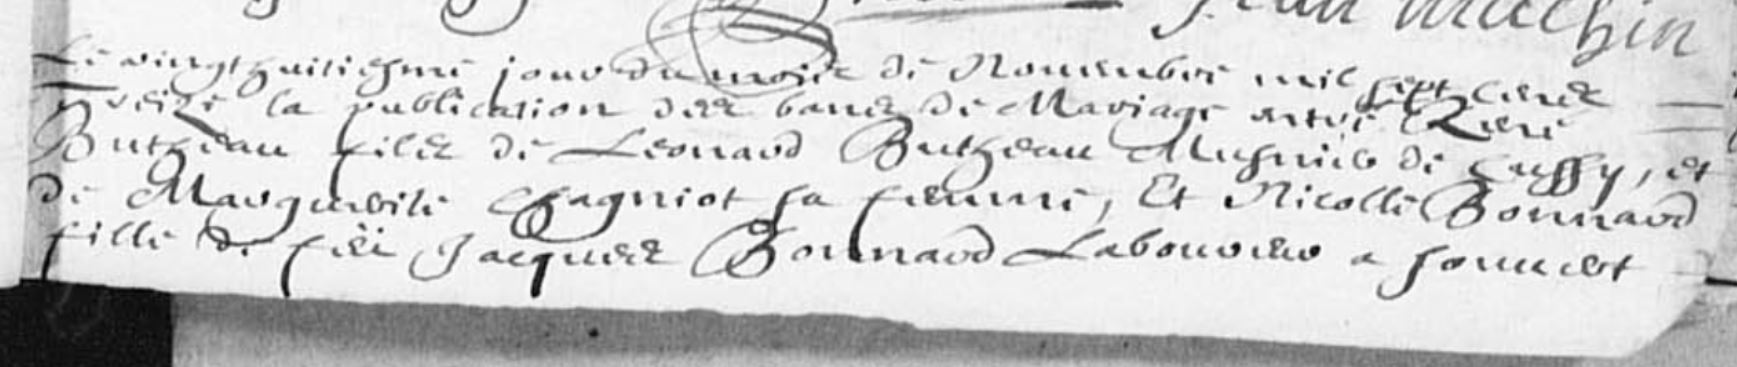 Jean Machin
Le vingt huitiesme jour du mois de Novembre mil sept cens
treize la publication des bans de Mariage entre René
Butheau fils de Leonard Butheau Musnier de Cussy, et
de Marguerite Chagniot sa femme, Et Nicolle Bonnard
fille de feu Jacques Bonnard Laboureur a